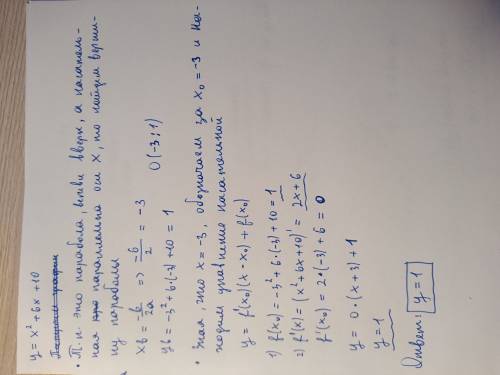 y = x² + 6x + 10
• Т.к. это парабола, ветви вверх, а касатель-
ная параллельно оси x, то найдем верши-
ну параболы
xв = -b/2a => -6/2 = -3
yв = -3² + 6·(-3) + 10 = 1    O(-3; 1)
• Зная, что x = -3, обозначаем за x₀ = -3 и на-
ходим уравнение касательной
y = f'(x₀)(x - x₀) + f(x₀)
1) f(x₀) = -3² + 6·(-3) + 10 = 1
2) f'(x) = (x² + 6x + 10)' = 2x + 6
f'(x₀) = 2·(-3) + 6 = 0
y = 0·(x + 3) + 1
y = 1
Ответ: y = 1